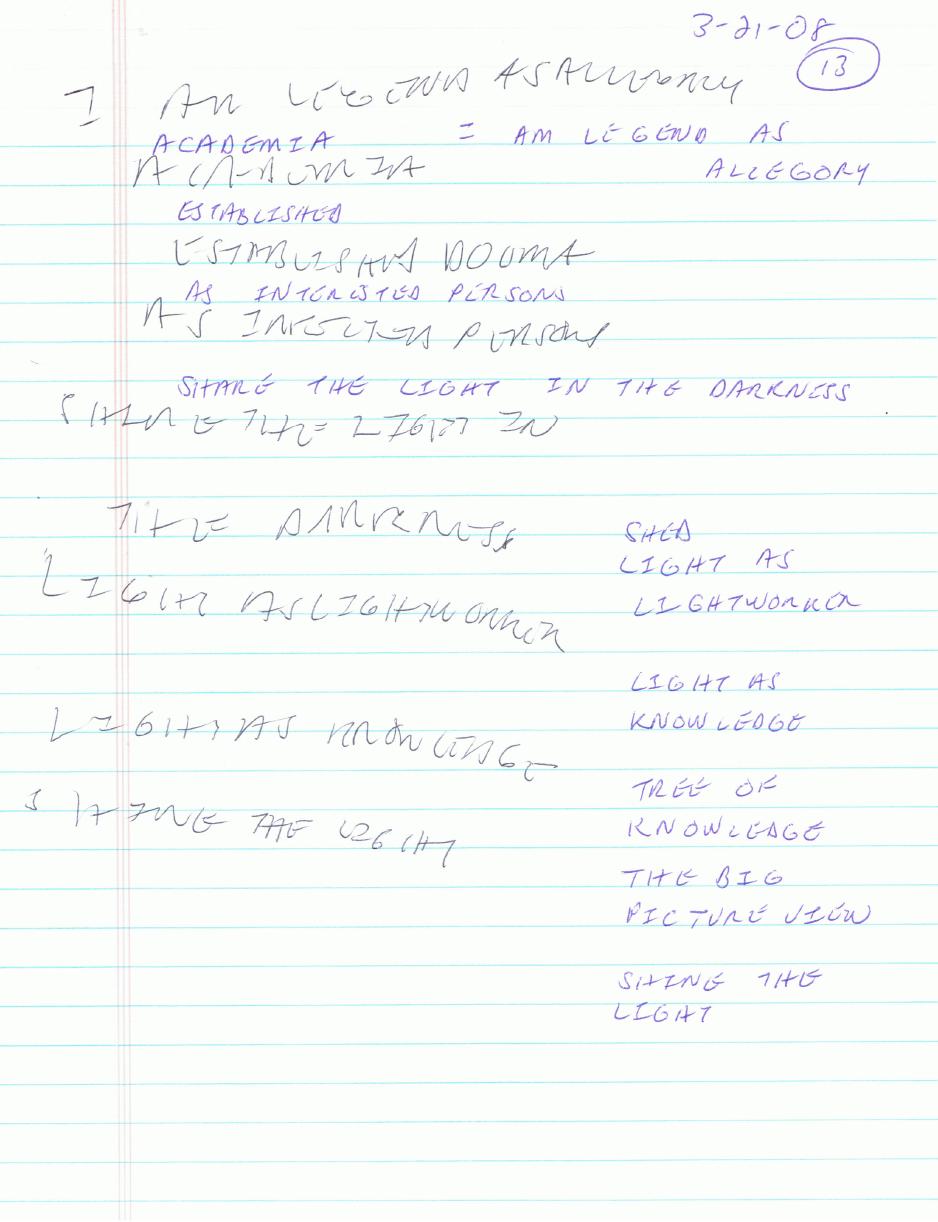 3-21-08
13
I AM LEGEND AS ALLEGORY
ACADEMIA = AM LEGEND AS
ACADEMIA ALLEGORY
ESTABLISHED
ESTABLISHED DOGMA
AS INTERESTED PERSONS
AS INFECTED PERSONS
SHARE THE LIGHT IN THE DARKNESS
SHINE THE LIGHT IN
THE DARKNESS
SHED
LIGHT AS
LIGHT AS LIGHTWORKER
LIGHTWORKER
LIGHT AS
LIGHT AS KNOWLEDGE
KNOWLEDGE
TREE OF
SHINE THE LIGHT
KNOWLEDGE
THE BIG
PICTURE VIEW
SHINE THE
LIGHT